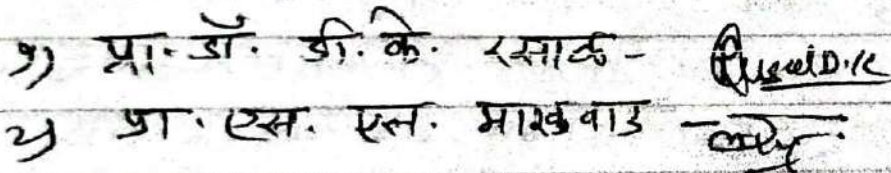 १) प्रा. डॉ. डी. के. रसाळ -
२) प्रा. एस. एल. मारकवाड -